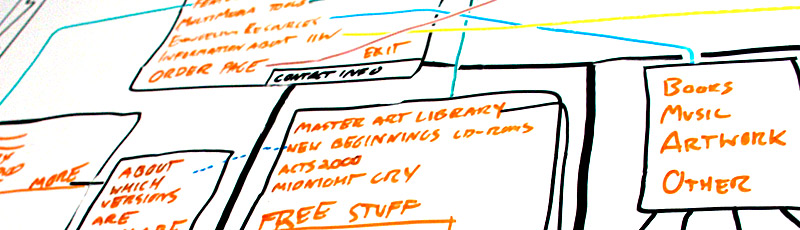 MULTIMEDIA TOOLS
EVANGELISM RESOURCES
INFORMATION ABOUT IIW
EXIT
ORDER PAGE
CONTACT INFO
MORE
ABOUT
WHICH
VERSIONS
ARE
MASTER ART LIBRARY
NEW BEGINNINGS CD-ROMS
ACTS 2000
MIDNIGHT CRY
FREE STUFF
BOOKS
MUSIC
ARTWORK
OTHER